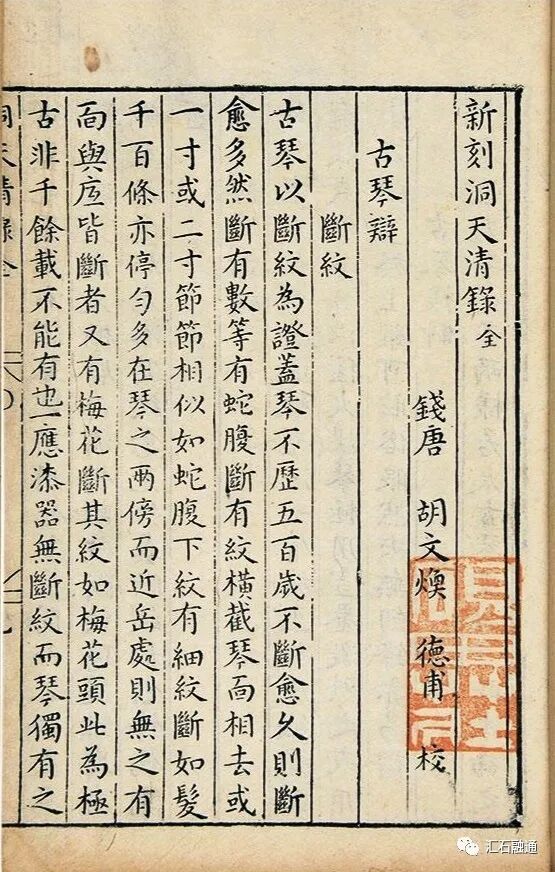 新刻洞天清錄全
錢唐 胡文煥 德甫 校
古琴辯
斷紋
古琴以斷紋為證蓋琴不歷五百歲不斷愈久則斷
愈多然斷有數等有蛇腹斷有紋橫截琴面相去或
一寸或二寸節節相似如蛇腹下紋有細紋斷如髮
千百條亦停勻多在琴之兩傍而近岳處則無之有
面與底皆斷者又有梅花斷其紋如梅花頭此為極
古非千餘載不能有也一應漆器無斷紋而琴獨有之
洞天清錄全
汇石融通